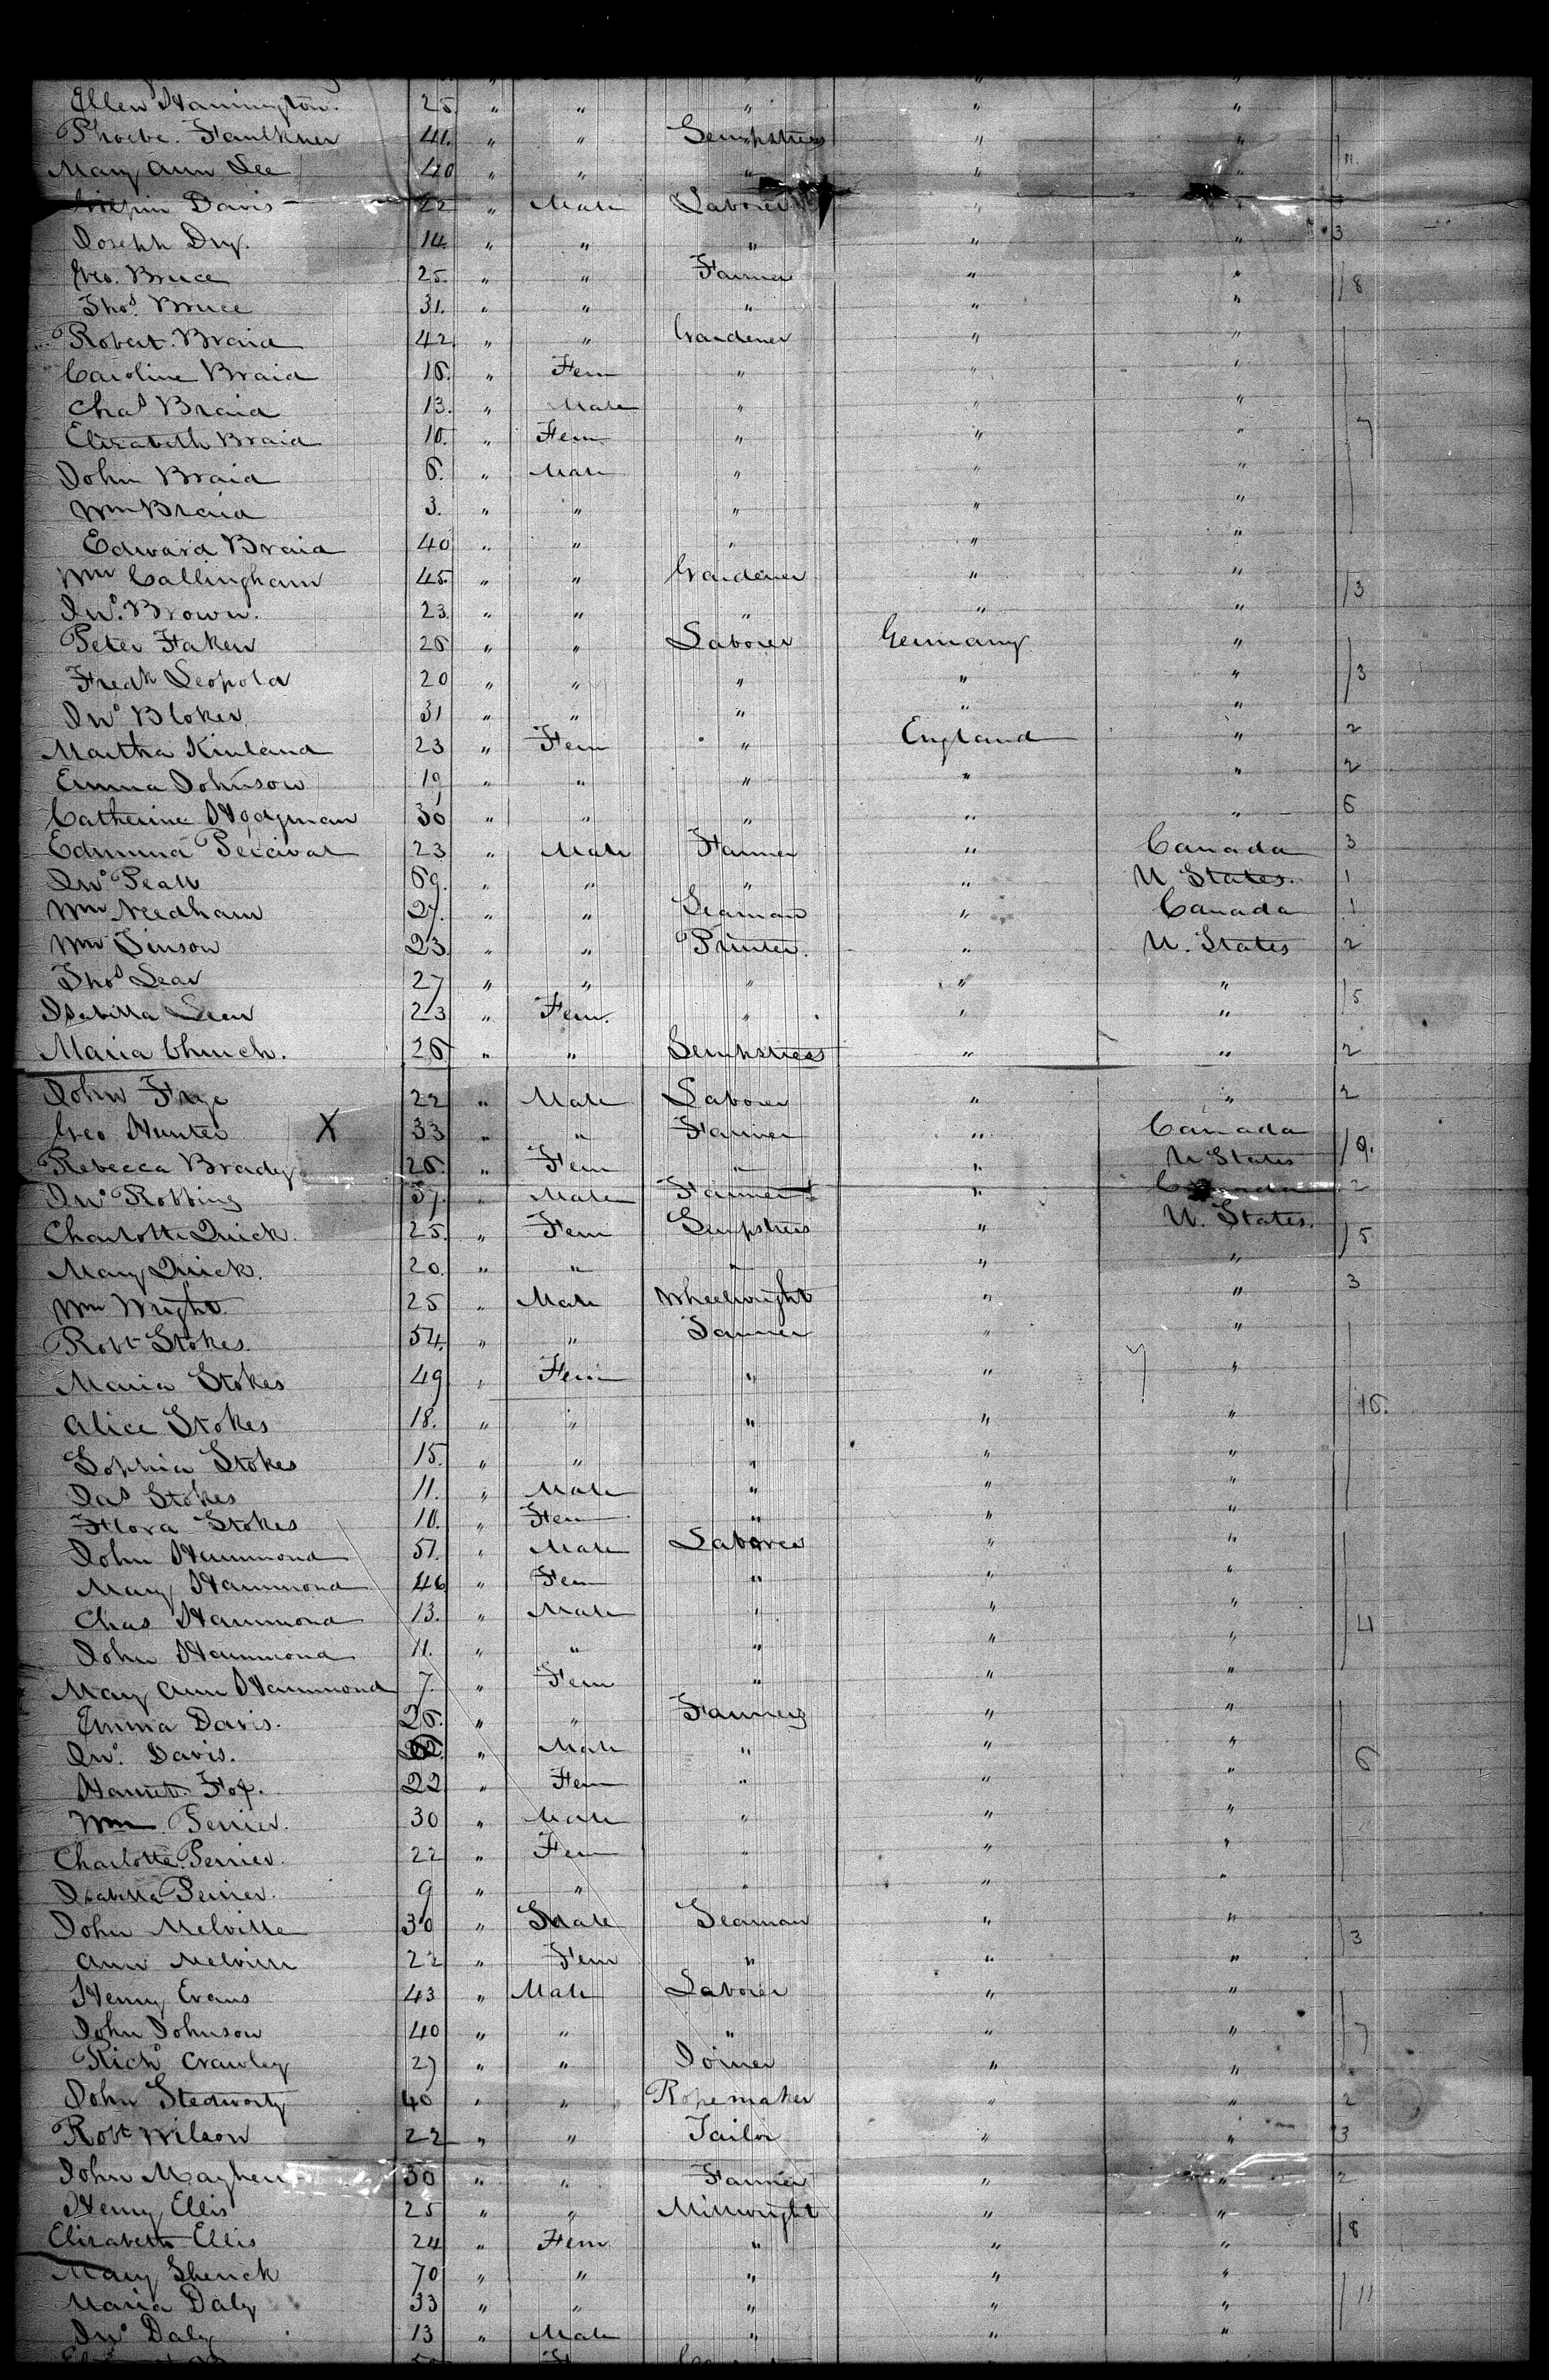 Ellen Hannington. 25 " " " " "
Phoebe. Faulkner 41. " " Sempstress " "
Mary Ann Lee 40 " " " " " 11.
Davis 22 " Male Laborer " "
Joseph Dry. 14. " " " " " 3
Geo. Bruce 25. " " Farmer " " 8
Thos. Bruce 31. " " " " "
Robert. Braid 42. " " Gardener " "
Caroline Braid 16. " Fem " " "
Chas Braid 13. " Male " " "
Elizabeth Braid 10. " Fem " " " 7
John Braid 6. " Male " " "
Wm Braid 3. " " " " "
Edward Braid 40 " " " " "
Wm Callingham 45. " " Gardener " " 3
Jno. Brown. 23. " " " " "
Peter Faken 26 " " Laborer Germany "
Fredk Leopold 20 " " " " " 3
Jno Bloker 31 " " " " "
Martha Kinland 23 " Fem " England " 2
Emma Johnson 19 " " " " " 2
Catherine Hodgman 30 " " " " " 6
Edmund Percival 23 " Male Farmer " Canada 3
Jno Peall 69. " " " " U States. 1
Wm Needham 27. " " Seaman " Canada 1
Wm Simson 23. " " Printer. " U. States 2
Thos Lear 27 " " " " "
Isabella Lear 23 " Fem. " " " 5
Maria Church. 26 " " Sempstress " " 2
John Frye 22 " Male Laborer " " 2
Geo Hunter X 33 " " Farmer " Canada
Rebecca Brady 26. " Fem " " U States 9.
Jno Robbing 37. " Male Farmer " Canada 2
Charlotte Quick. 25. " Fem Sempstress " U. States. 5
Mary Quick. 20. " " " " "
Wm Wright. 25 " Male Wheelwright " " 3
Robt Stokes. 54. " " Farmer " "
Maria Stokes 49 " Fem " " "
Alice Stokes 18. " " " " " 16.
Sophia Stokes 15. " " " " "
Jas Stokes 11. " Male " " "
Flora Stokes 10. " Fem " " "
John Hammond 51. " Male Laborer " "
Mary Hammond 46 " Fem " " "
Chas Hammond 13. " Male " " " 4
John Hammond 11. " " " " "
Mary Ann Hammond 7. " Fem " " "
Emma Davis. 26. " " Farmers " "
Jno. Davis. " Male " " " 6
Harriet Fox. 22 " Fem " " "
Wm Perrier. 30 " Male " " "
Charlotte Perrier. 22 " Fem " " "
Isabella Perrier. 9 " " " " "
John Melville 30 " Male Seaman " " 3
Ann Melville 22 " Fem " " "
Henry Evans 43 " Male Laborer " "
John Johnson 40 " " " " " 7
Richd Crawley 27 " " Joiner " "
John Stedworthy 40 " " Ropemaker " " 2
Robt Wilson 22 " " Tailor " " 3
John Maghew 30 " " Farmer " " 2
Henry Ellis 25 " " Millwright " "
Elizabeth Ellis 24 " Fem " " " 8
Mary Sherick 70 " " " " "
Maria Daly 33 " " " " " 11
Jno Daly 13 " Male " " "